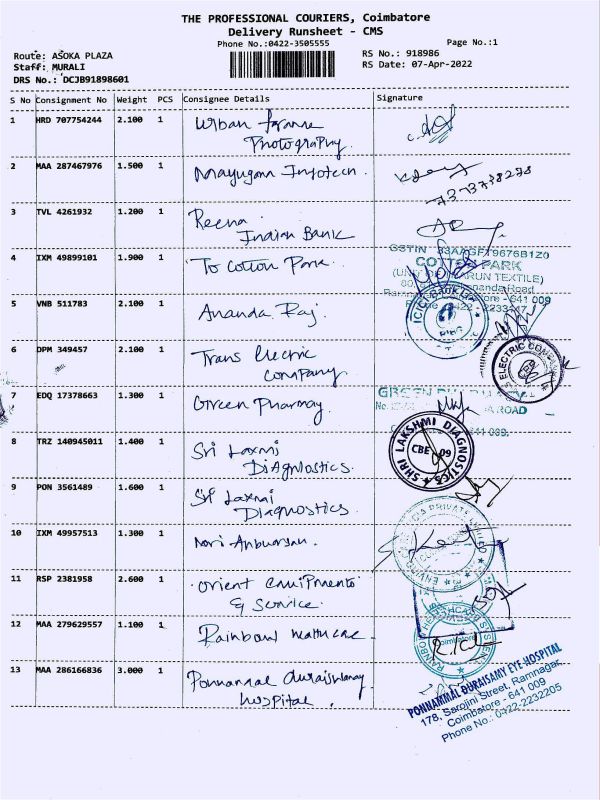 THE PROFESSIONAL COURIERS, Coimbatore
Delivery Runsheet - CMS
Phone No.:0422-3505555
Page No.:1
Route: ASOKA PLAZA
RS No.: 918986
Staff: MURALI
RS Date: 07-Apr-2022
DRS No.: DCJB91898601
S No Consignment No Weight PCS Consignee Details Signature
1 HRD 707754244 2.100 1 Urban Frame
Photography.
2 MAA 287467976 1.500 1 Infotech.
7373738278
3 TVL 4261932 1.200 1 Reena
Indian Bank
4 IXM 49899101 1.900 1 To Cotton Park.
COTTON PARK
TEXTILE)
641 009
5 VNB 511783 2.100 1 Ananda Raj
6 DPM 349457 2.100 1 Trans Electric
company
ELECTRIC
7 EDQ 17378663 1.300 1 Green Pharmay.
GREEN
ROAD
8 TRZ 140945011 1.400 1 Sri Laxmi
Diagnostics.
SHRI LAKSHMI DIAGNOSTICS
CBE 09
9 PON 3561489 1.600 1 Sri Laxmi
Diagnostics.
10 IXM 49957513 1.300 1
PRIVATE LIMITED
11 RSP 2381958 2.600 1 Orient Equipments
& Service.
12 MAA 279629557 1.100 1 Rainbow Healthcare
Coimbatore
13 MAA 286166836 3.000 1 Ponnammal Duraiswamy
hospital.
PONNAMMAL DURAISAMY EYE HOSPITAL
178, Sarojini Street, Ramnagar,
Coimbatore - 641 009
Phone No.: 0422-2232205